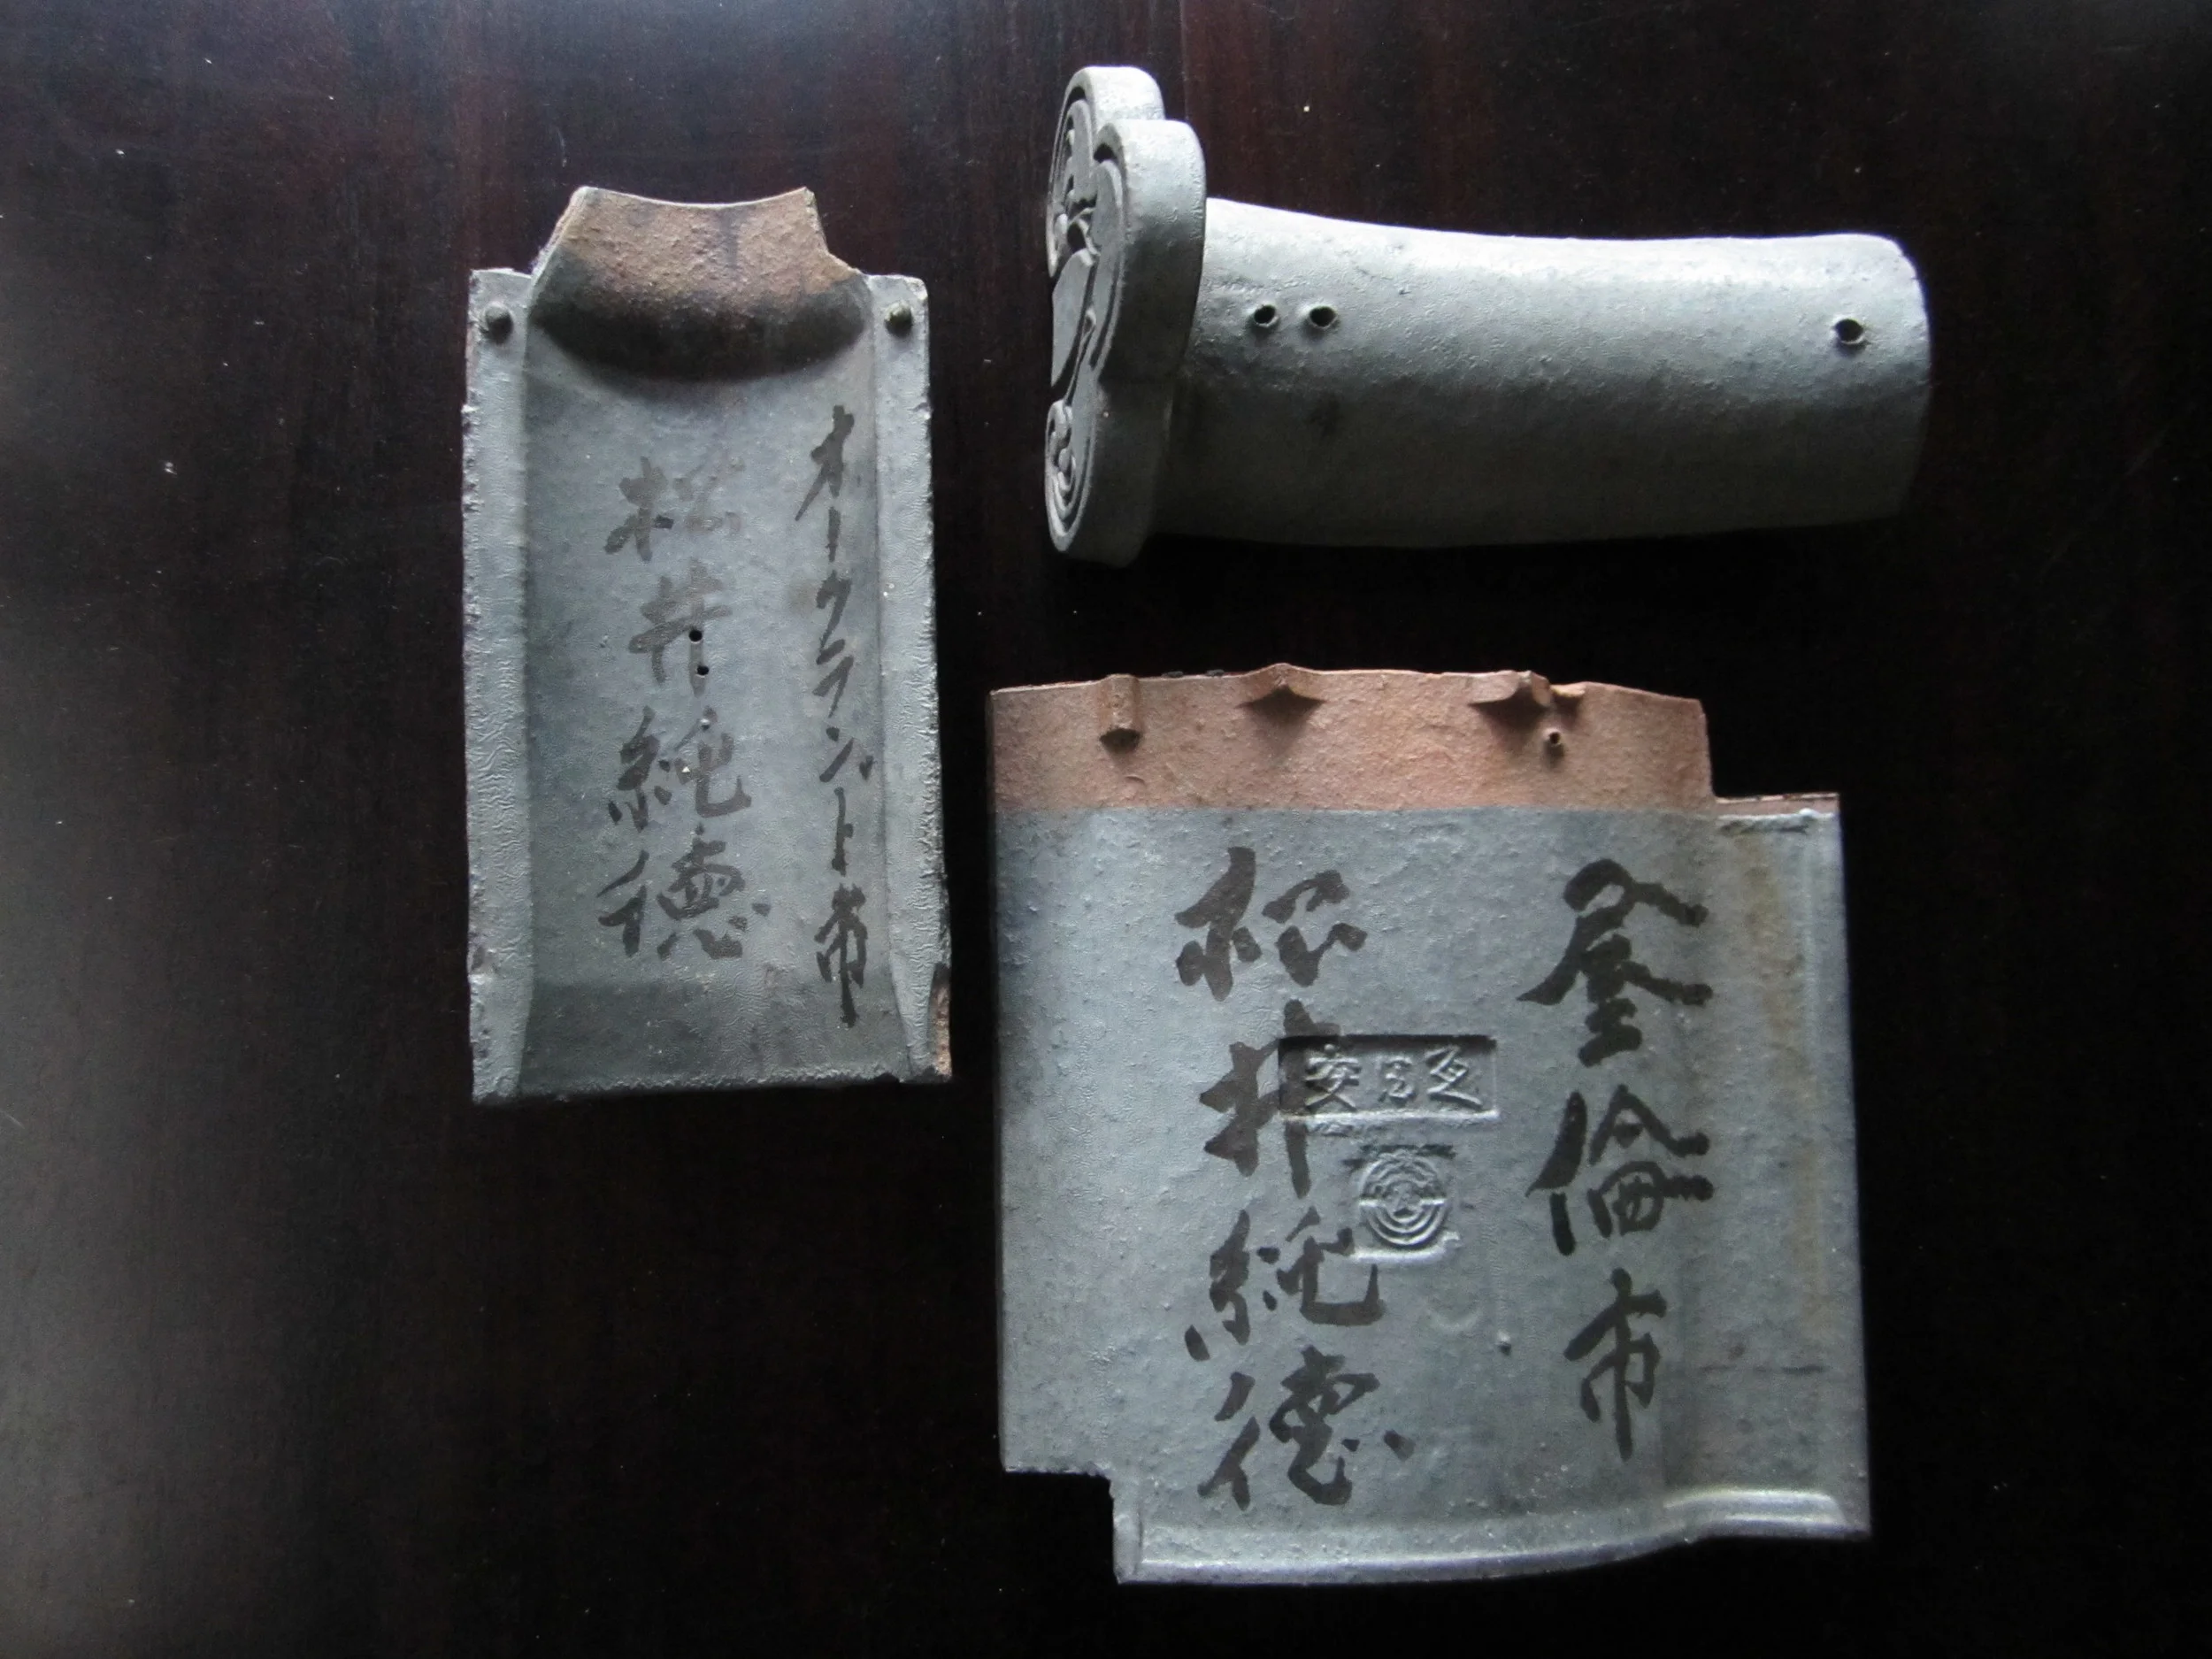 オークランド市
松井純徳
釜倫市
松井純徳
安日瓦